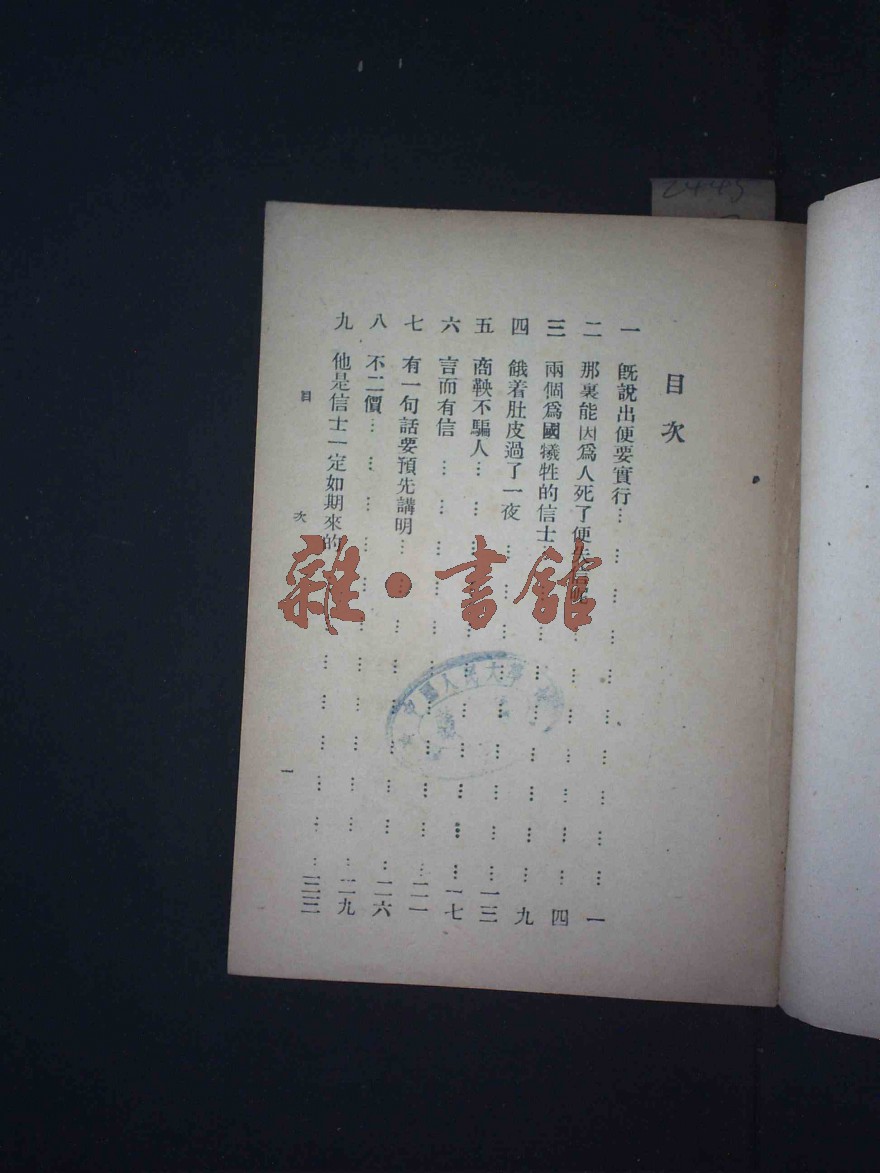 目次
一 既說出便要實行… … … … … … … … … … 一
二 那裏能因爲人死了便失信呢 … … … … … … … 四
三 兩個爲國犧牲的信士 … … … … … … … 九
四 餓着肚皮過了一夜 … … … … … … … … 一三
五 商鞅不騙人… … … … … … … … … … 一七
六 言而有信 … … … … … … … … … … 二一
七 有一句話要預先講明… … … … … … … … 二六
八 不二價… … … … … … … … … … … 二九
九 他是信士一定如期來的 … … … … … … … 三三
目 次
一
雜·書館
人民大學